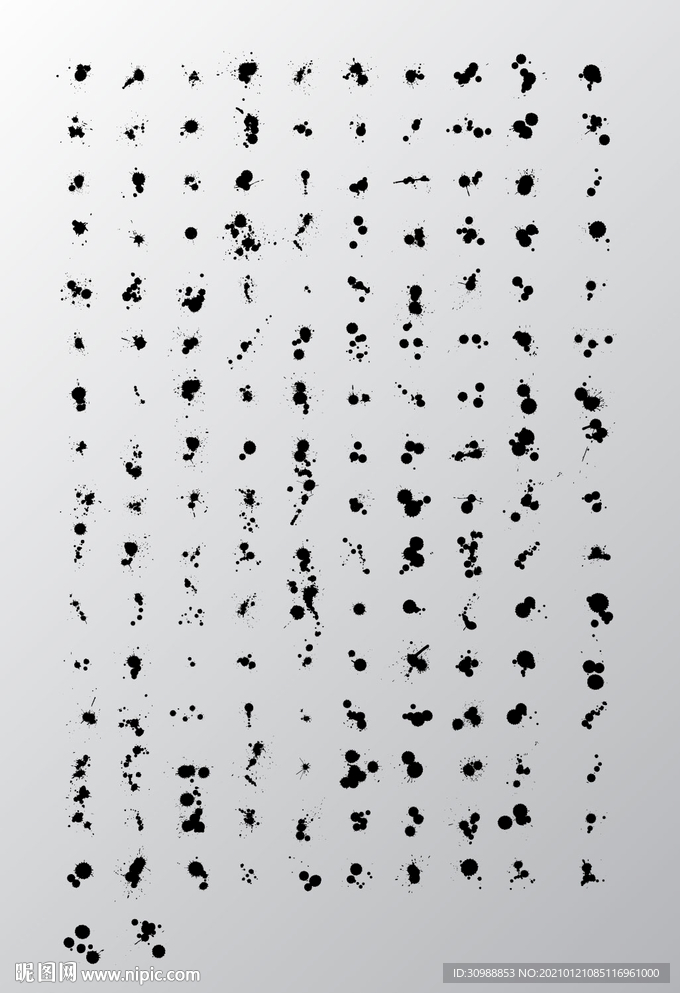 昵图网 www.nipic.com
ID:30988853 NO:20210121085116961000